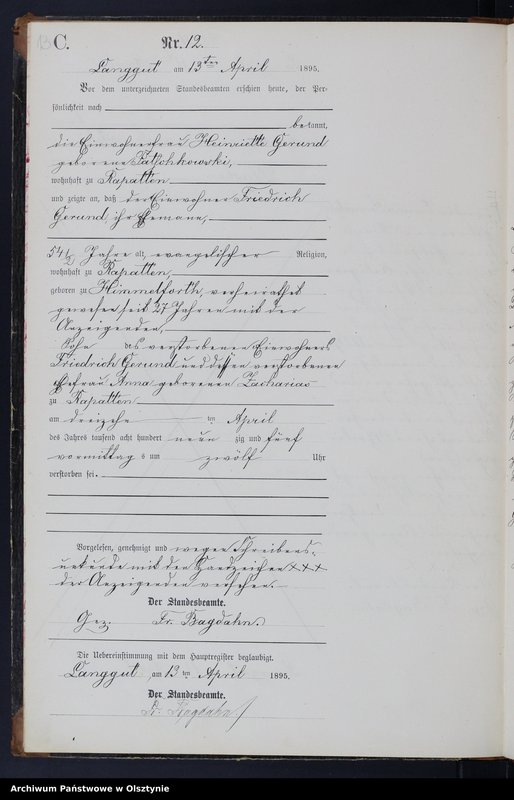 C. Nr. 12.
Langgut am 13ten April 1895.
Vor dem unterzeichneten Standesbeamten erschien heute, der Per-
sönlichkeit nach
bekannt,
die Einwohnerfrau Henriette Gerund
geborene
wohnhaft zu Rapatten
und zeigte an, daß der Einwohner Friedrich
Gerund, ihr Ehemann,
54 1/2 Jahre alt, evangelischer Religion,
wohnhaft zu Rapatten,
geboren zu Himmelforth, verheirathet
gewesen seit 27 Jahren mit der
Anzeigenden,
Sohn des verstorbenen Einwohners
Friedrich Gerund und dessen verstorbenen
Ehefrau Anna geborenen Zacharias
zu Rapatten
am dreizehn ten April
des Jahres tausend acht hundert neun zig und fünf
vormittag s um zwölf Uhr
verstorben sei.
Vorgelesen, genehmigt und wegen Schreibens-
unkunde mit den Handzeichen +++
der Anzeigenden versehen.
Der Standesbeamte.
Gez. Fr. Bagdahn.
Die Uebereinstimmung mit dem Hauptregister beglaubigt.
Langgut am 13 ten April 1895.
Der Standesbeamte.
Fr. Bagdahn
Archiwum Państwowe w Olsztynie